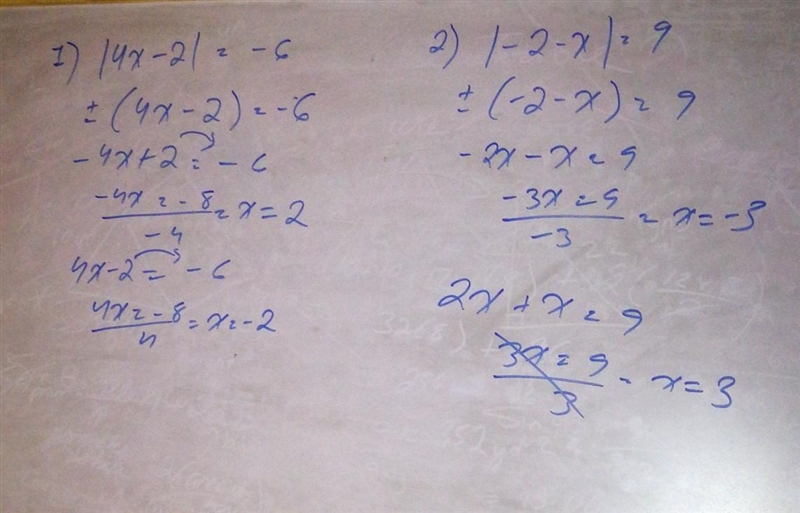 1) |4x-2| = -6
± (4x-2) = -6
-4x+2 = -6
-4x = -8
-4
= x = 2
4x-2 = -6
4x = -8
4
= x = -2
2) |-2-x| = 9
± (-2-x) = 9
-2x-x = 9
-3x = 9
-3
= x = -3
2x+x = 9
3x = 9
3
- x = 3